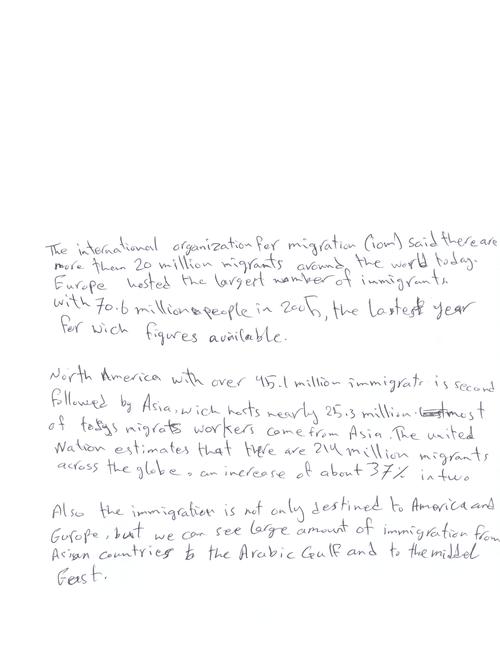 The international organization for migration (iom) said there are
more than 20 million migrants around the world today.
Europe hosted the largest number of immigrants,
with 70.6 million people in 2005, the lastest year
for wich figures available.
North America with over 45.1 million immigrats is second
followed by Asia, wich hosts nearly 25.3 million. most
of todys migrats workers come from Asia. The united
Nation estimates that there are 214 million migrants
across the globe, an increase of about 37% in two
Also the immigration is not only destined to America and
Europe, but we can see large amount of immigration from
Asian countries to the Arabic Gulf and to the middel
East.